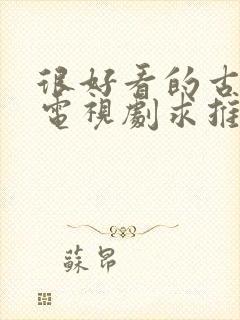 很好看的古
電視劇求推
蘇昂